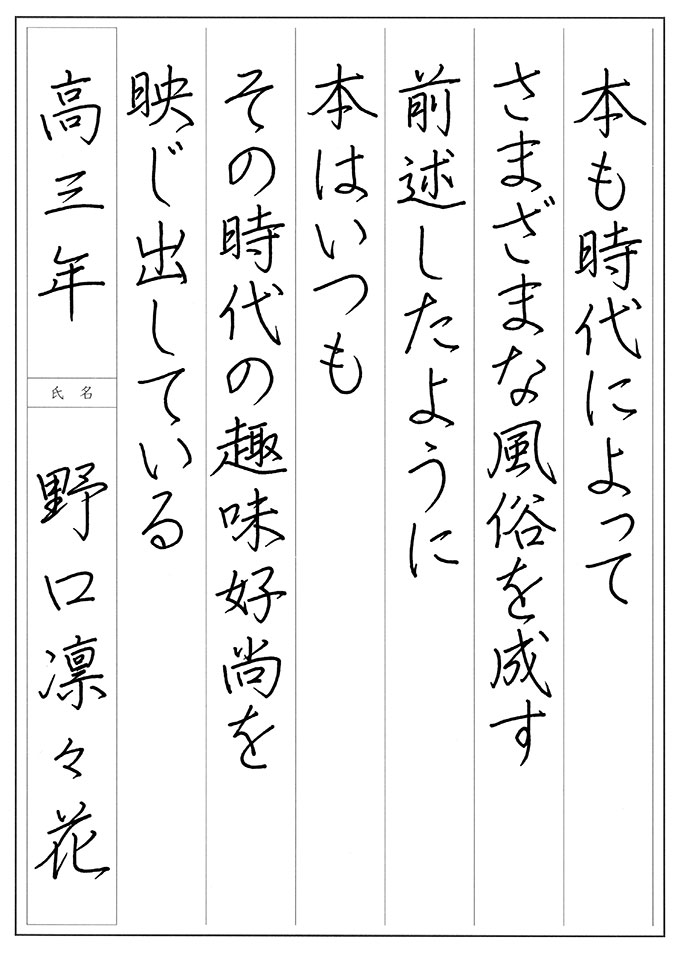 本も時代によって
さまざまな風俗を成す
前述したように
本はいつも
その時代の趣味好尚を
映じ出している
高三年
氏名
野口凛々花